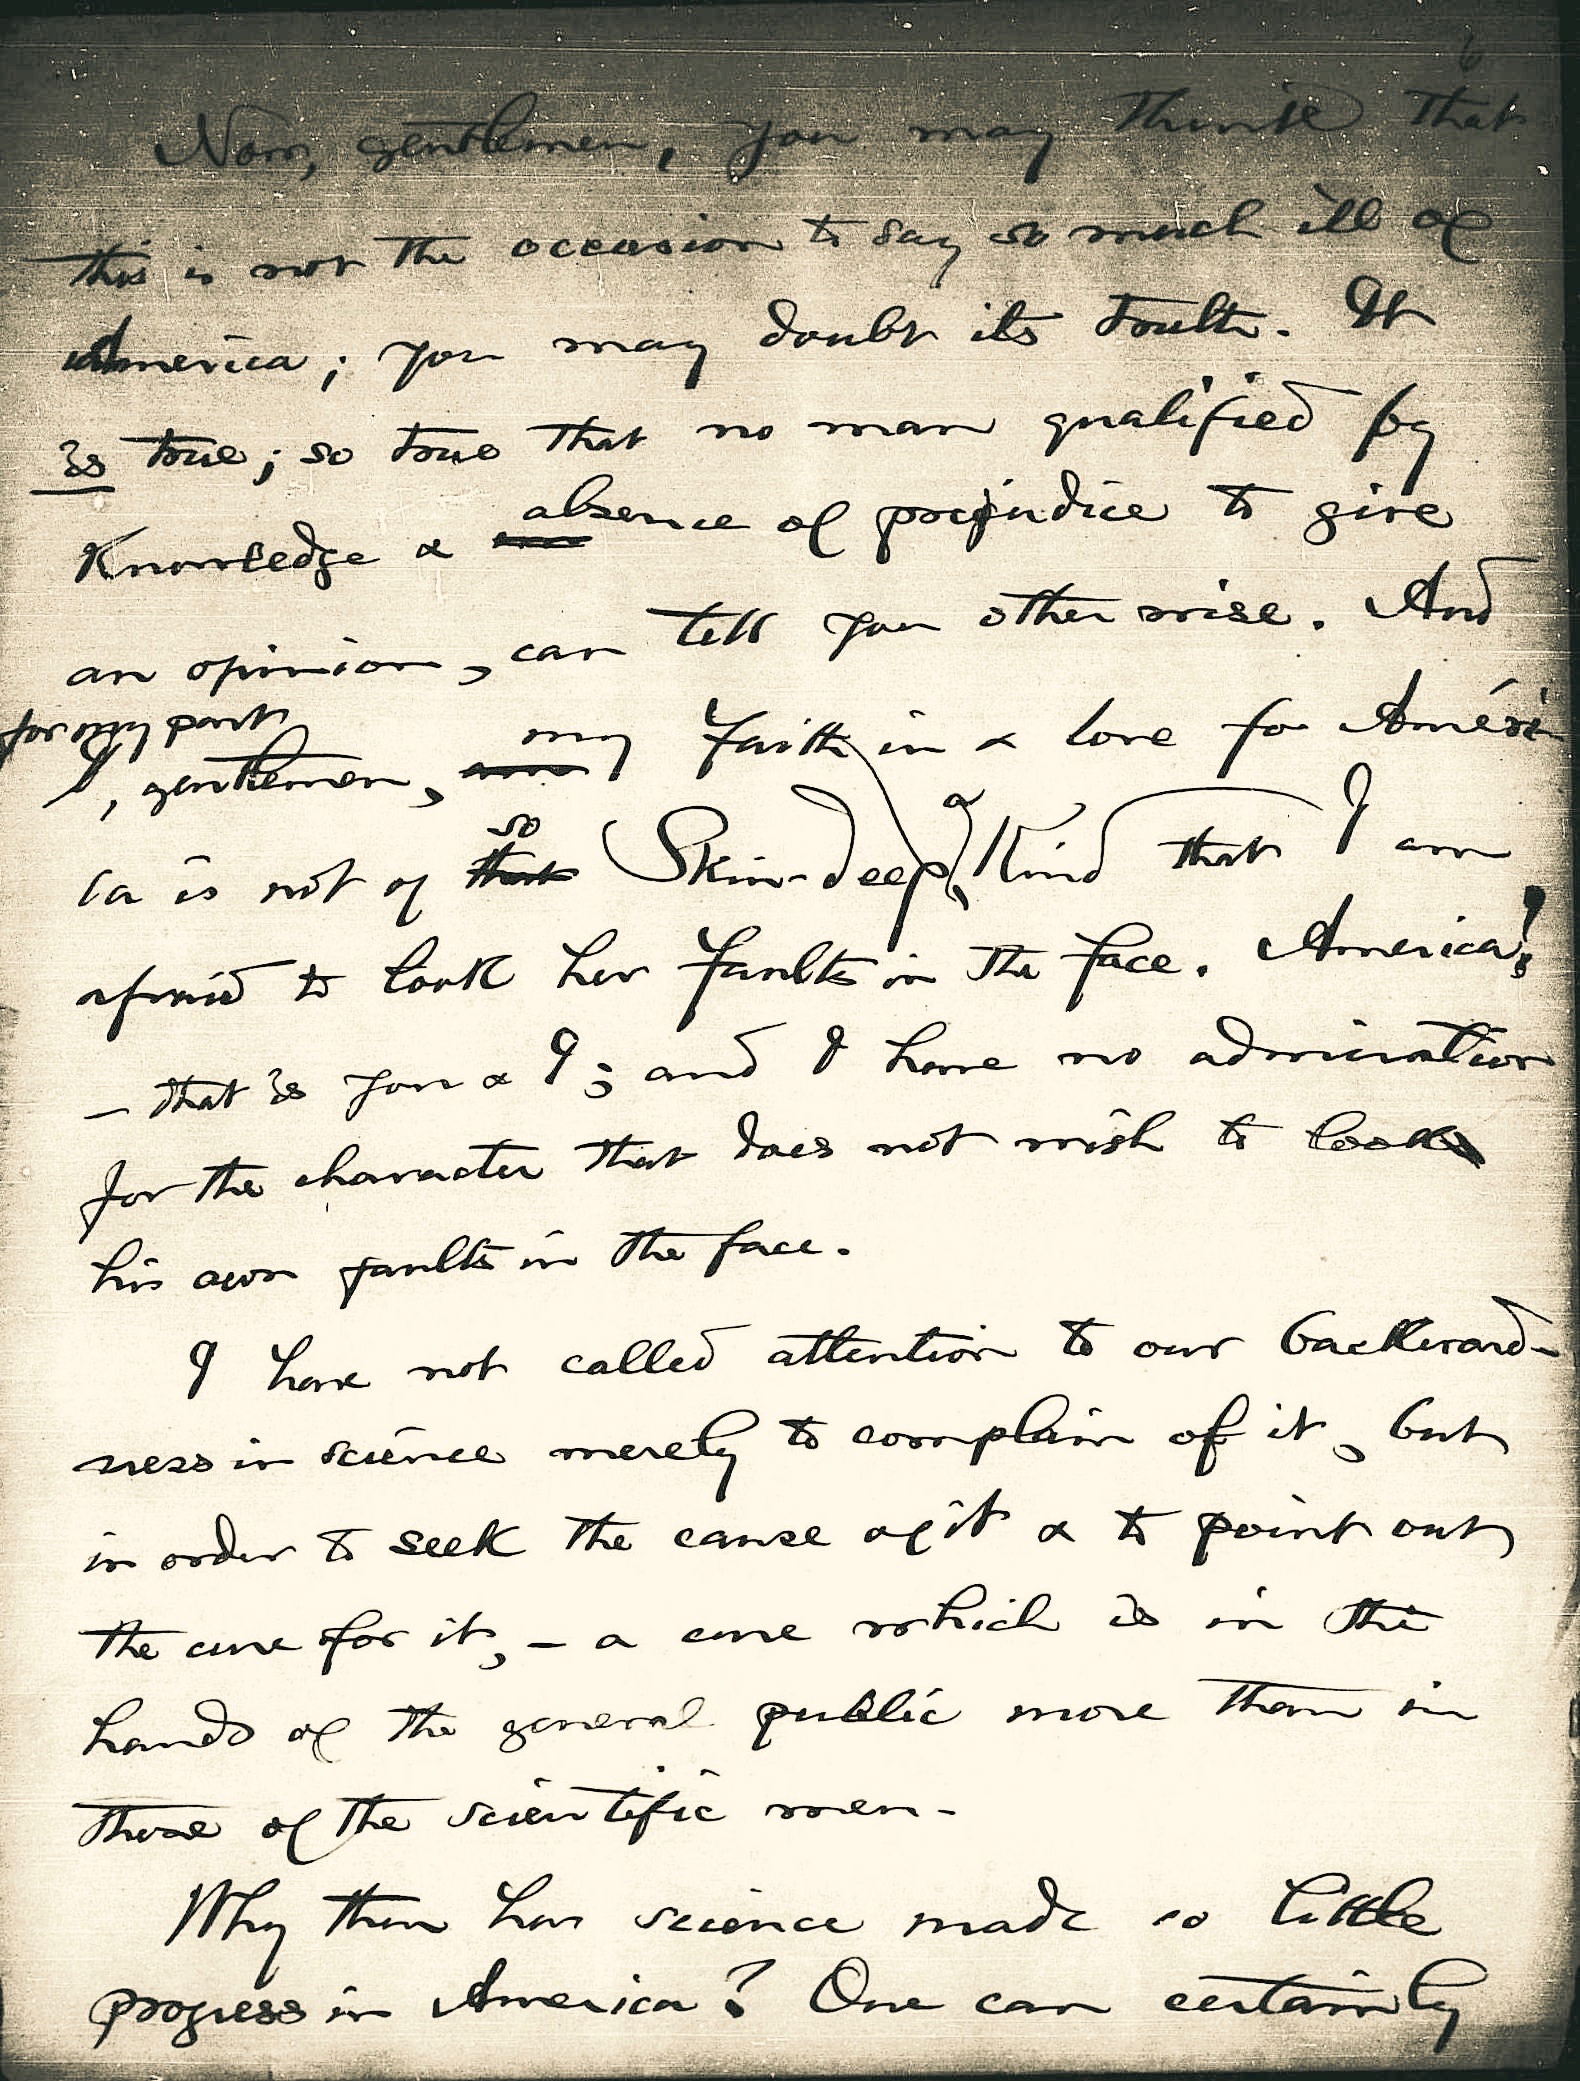 6
Now, gentlemen, you may think that
this is not the occasion to say so much ill of
America; you may doubt its truth. It
is true; so true that no man qualified by
Knowledge & absence of prejudice to give
an opinion, can tell you otherwise. And
for my part
I, gentlemen, my faith in & love for Ameri
ca is not of so Skin-deep a Kind that I am
afraid to look her faults in the face. America!
– that is you & I; and I have no admiration
for the character that does not wish to look
his own faults in the face.
I have not called attention to our backward-
ness in science merely to complain of it, but
in order to seek the cause of it & to point out
the cure for it, – a cure which is in the
hands of the general public more than in
those of the scientific men.
Why then has science made so little
progress in America? One can certainly